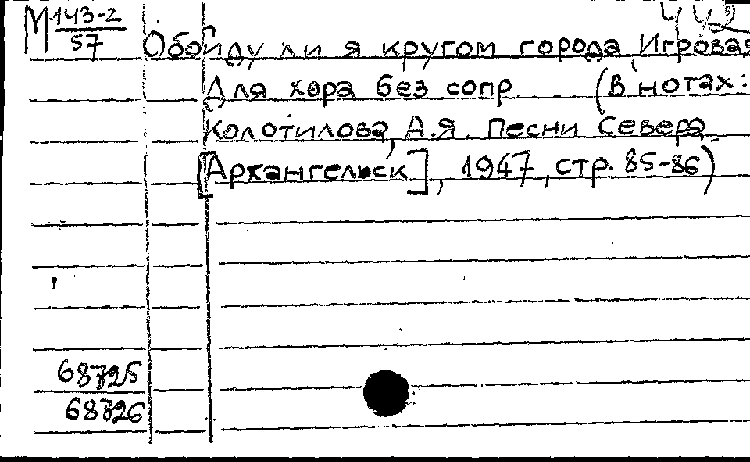 М 143-2
57
Обойду ли я кругом города Игровая
Для хора без сопр. (В нотах:
Колотилова, А.Я. Песни Севера.
[Архангельск], 1947, стр. 85-86)
68725
68726